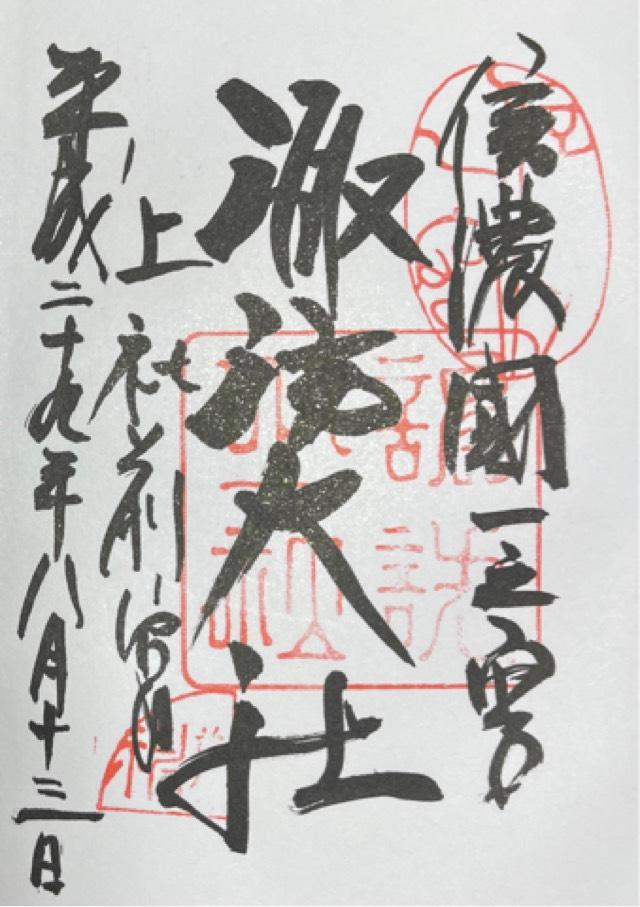 信濃國一之宮
諏訪大社
上社前宮
平成二十九年八月十三日